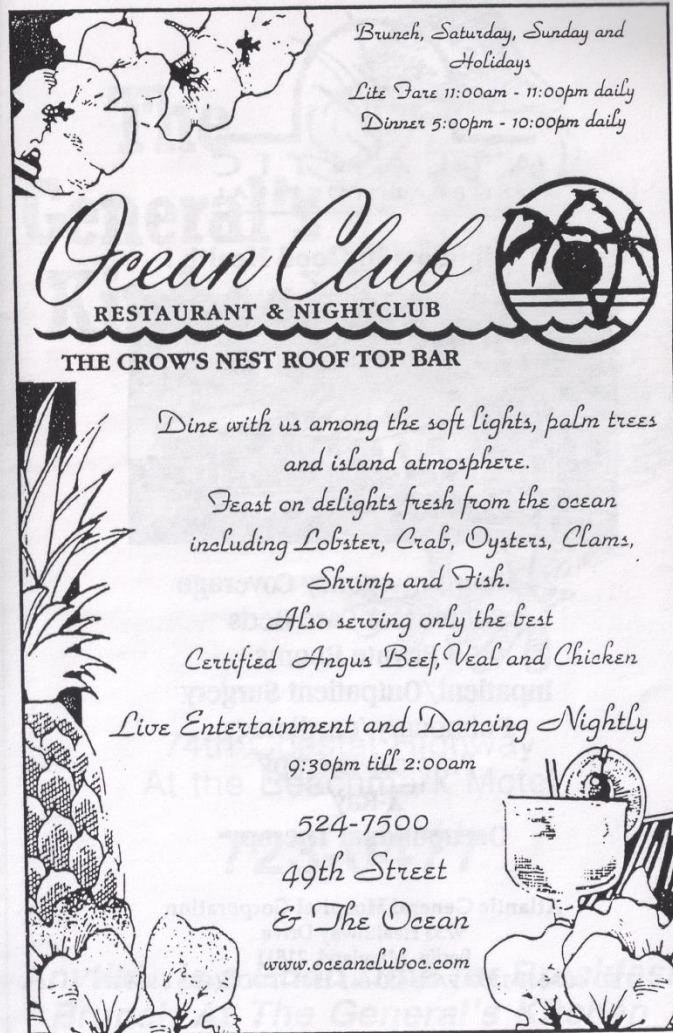 Brunch, Saturday, Sunday and
Holidays
Lite Fare 11:00am - 11:00pm daily
Dinner 5:00pm - 10:00pm daily
Ocean Club
RESTAURANT & NIGHTCLUB
THE CROW'S NEST ROOF TOP BAR
Dine with us among the soft lights, palm trees
and island atmosphere.
Feast on delights fresh from the ocean
including Lobster, Crab, Oysters, Clams,
Shrimp and Fish.
Also serving only the best
Certified Angus Beef, Veal and Chicken
Live Entertainment and Dancing Nightly
9:30pm till 2:00am
524-7500
49th Street
& The Ocean
www.oceancluboc.com